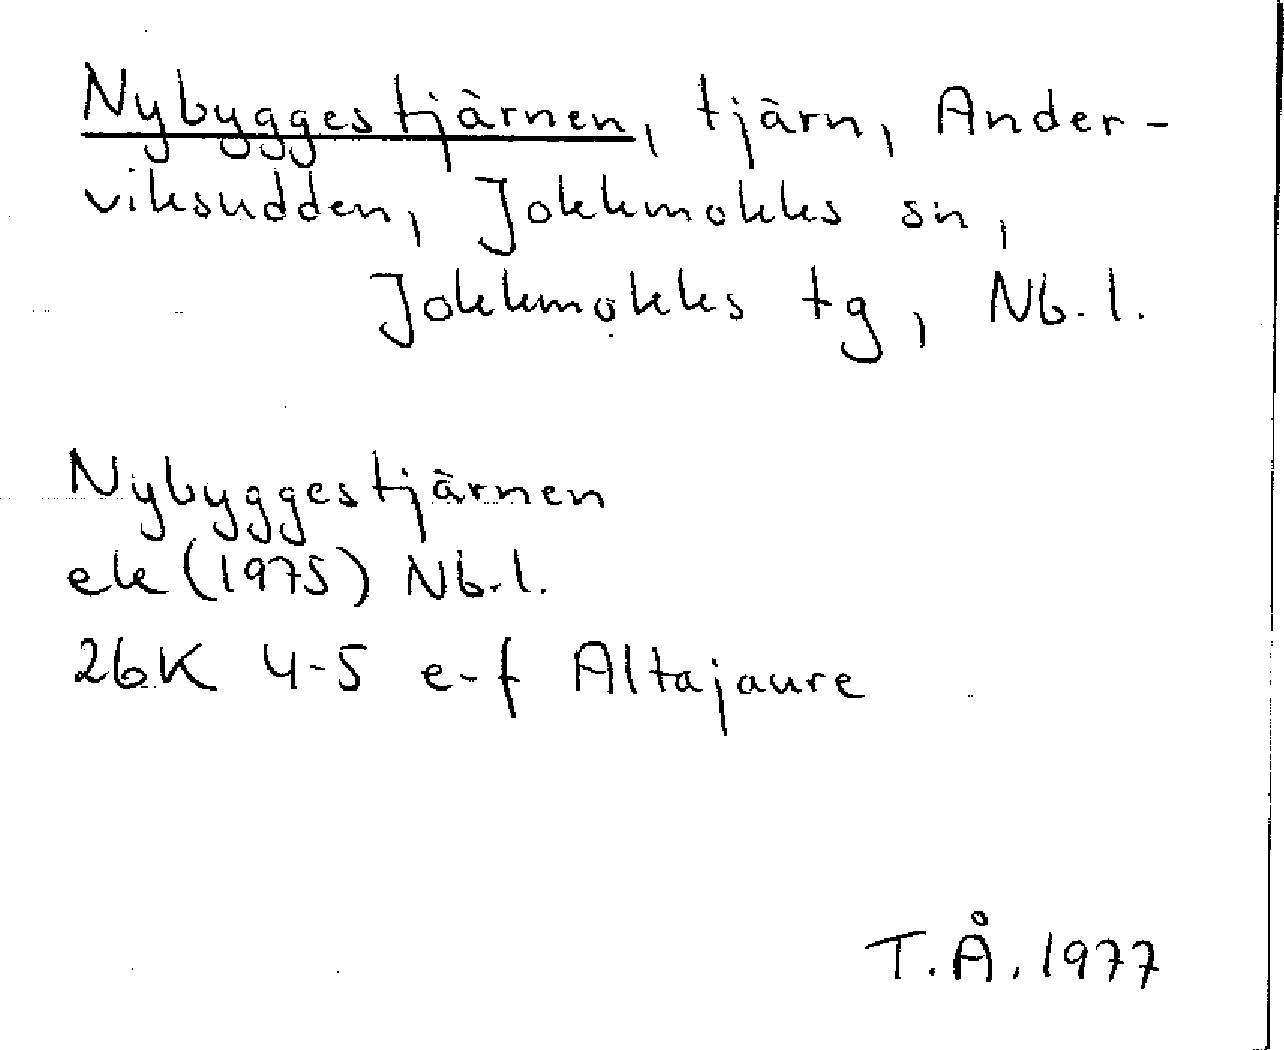 Nybyggestjärnen, tjärn, Ander-
viksudden, Jokkmokks sn,
Jokkmokks tg, Nb.l.
Nybyggestjärnen
ek (1975) Nb.l.
26K 4-5 e-f Altajaure
T.Å. 1977